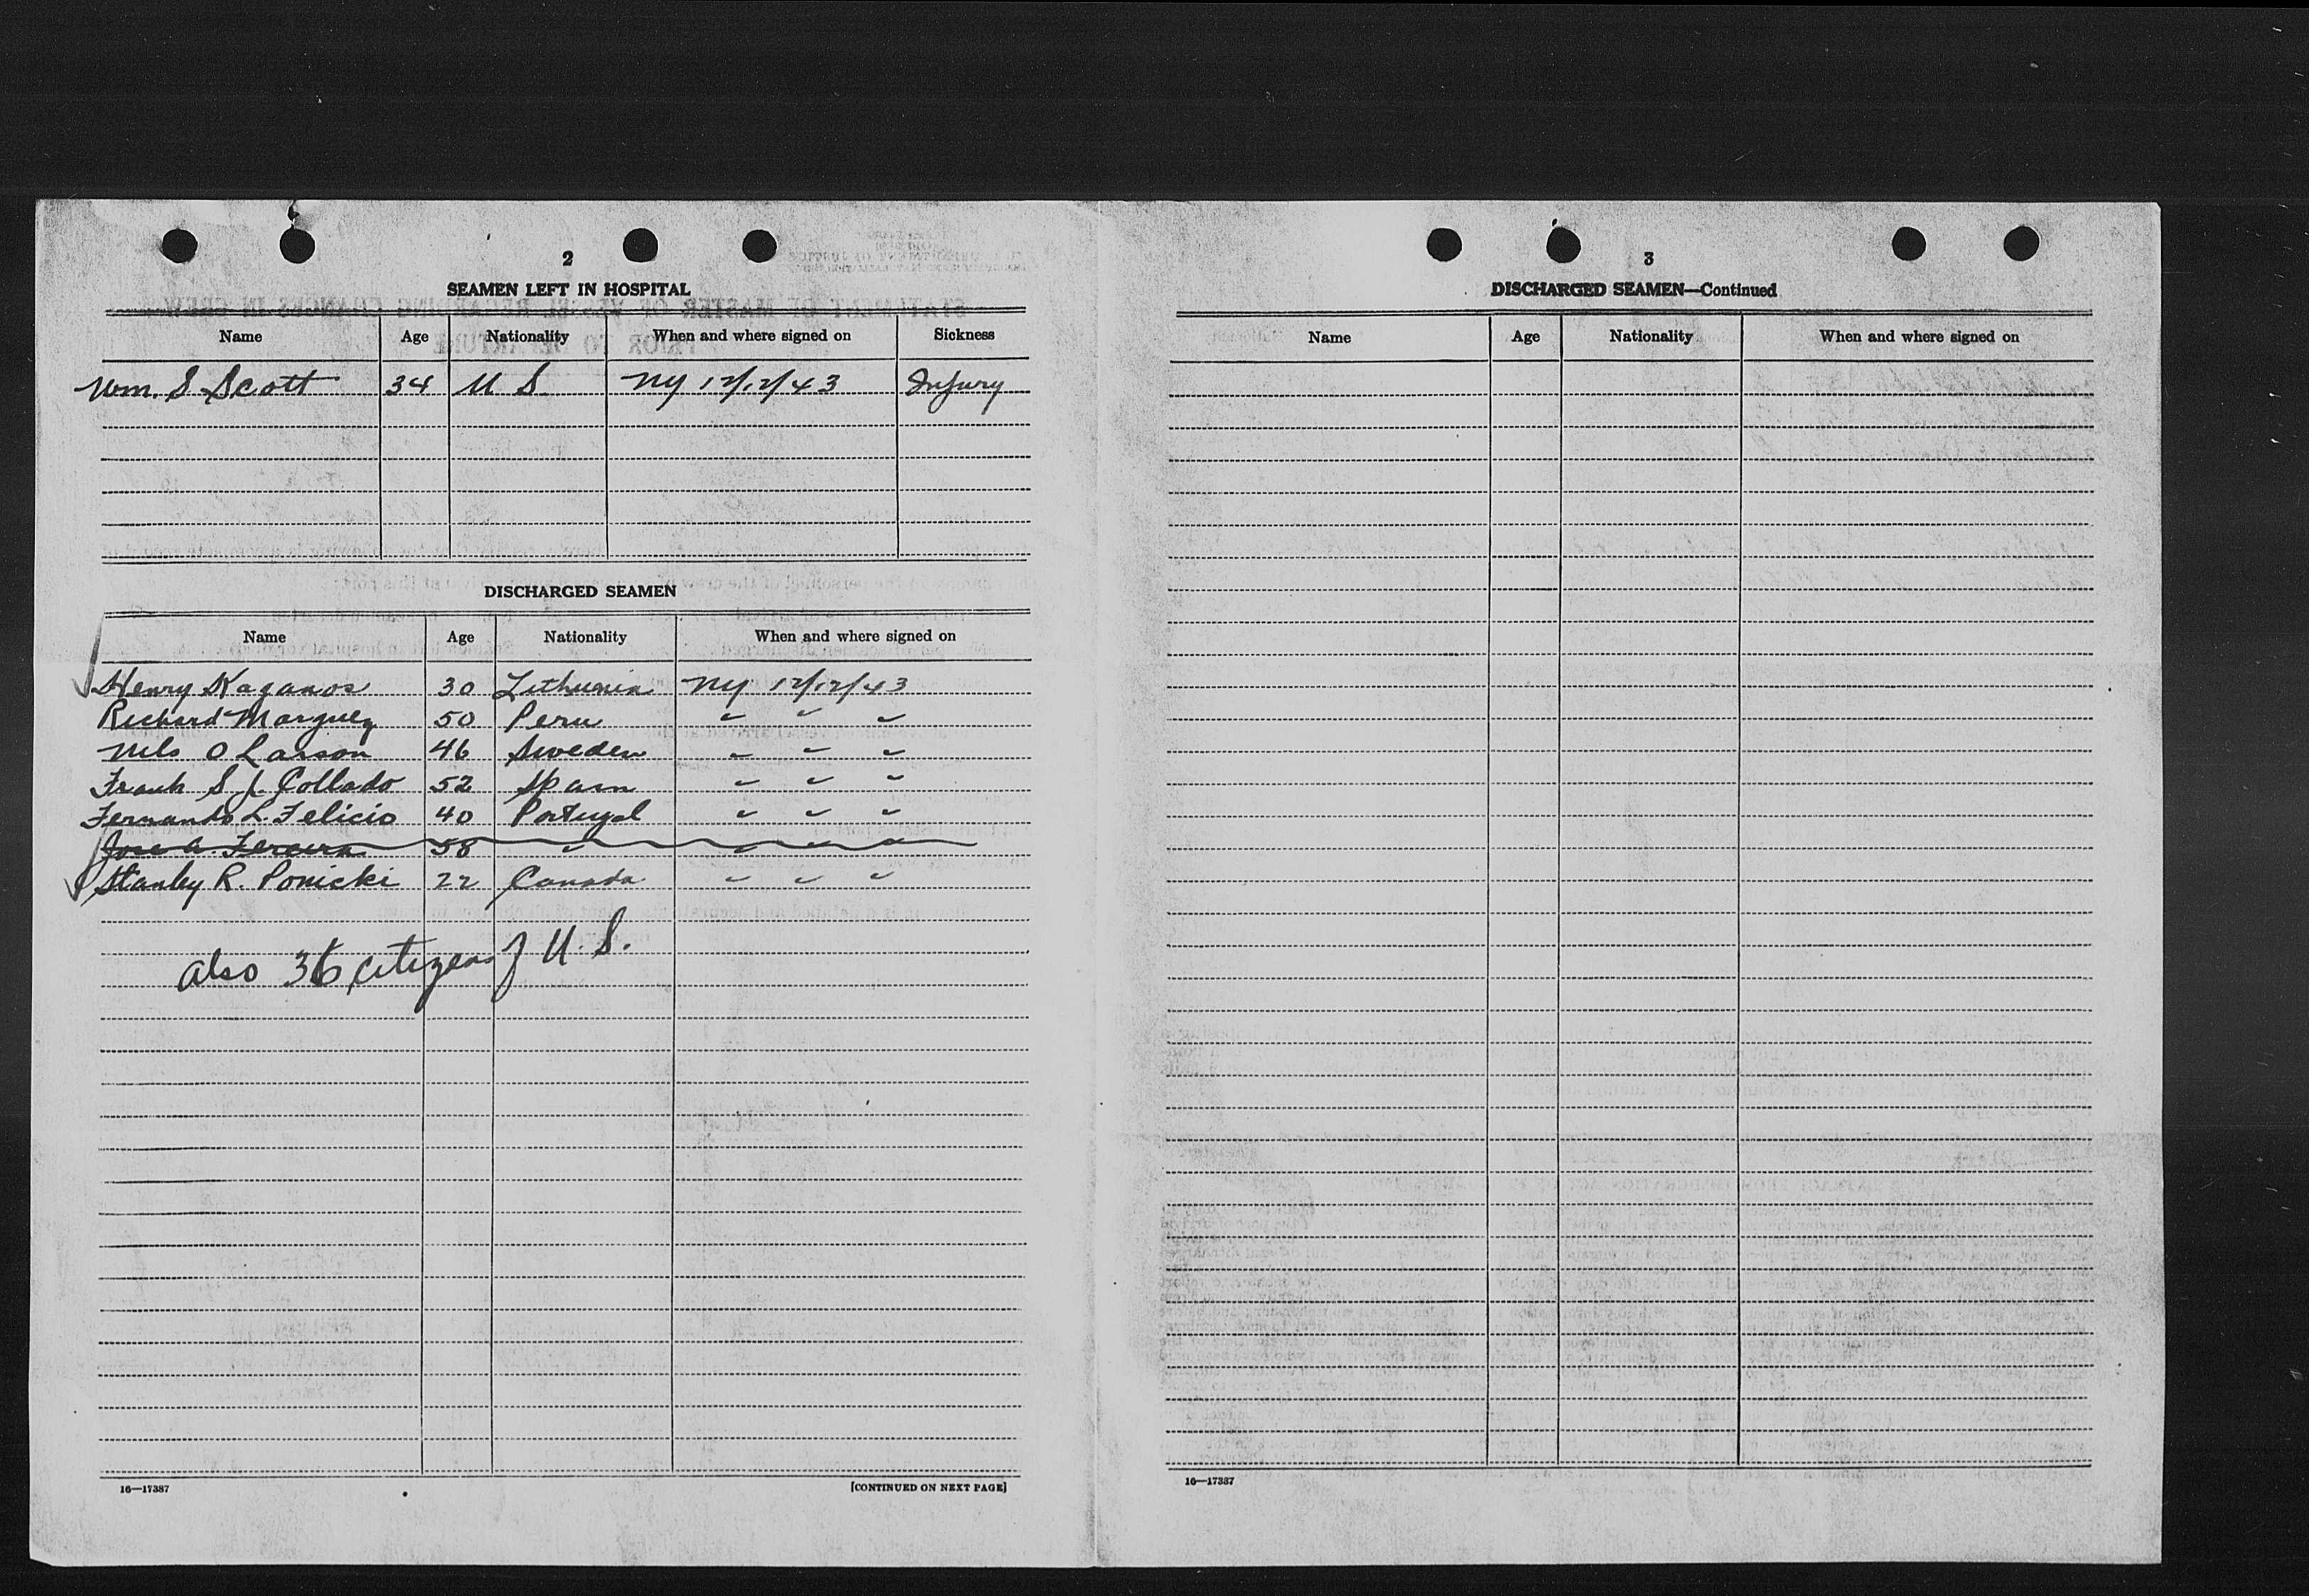 2
SEAMEN LEFT IN HOSPITAL
Name Age Nationality When and where signed on Sickness
Wm. S. Scott 34 U S. NY 12/12/43 Injury
DISCHARGED SEAMEN
Name Age Nationality When and where signed on
Henry Kaganos 30 Lithunia NY 12/12/43
Richard Marquez 50 Peru " " "
Nils O Larson 46 Sweden " " "
Frank S J. Collado 52 Spain " " "
Fernando L. Felicio 40 Portugal " " "
Jose A. Fereira 58 " " " "
Stanley R. Ponicki 22 Canada " " "
also 36 citizens of U.S.
16—17387 [CONTINUED ON NEXT PAGE]
3
DISCHARGED SEAMEN—Continued
Name Age Nationality When and where signed on
16—17387